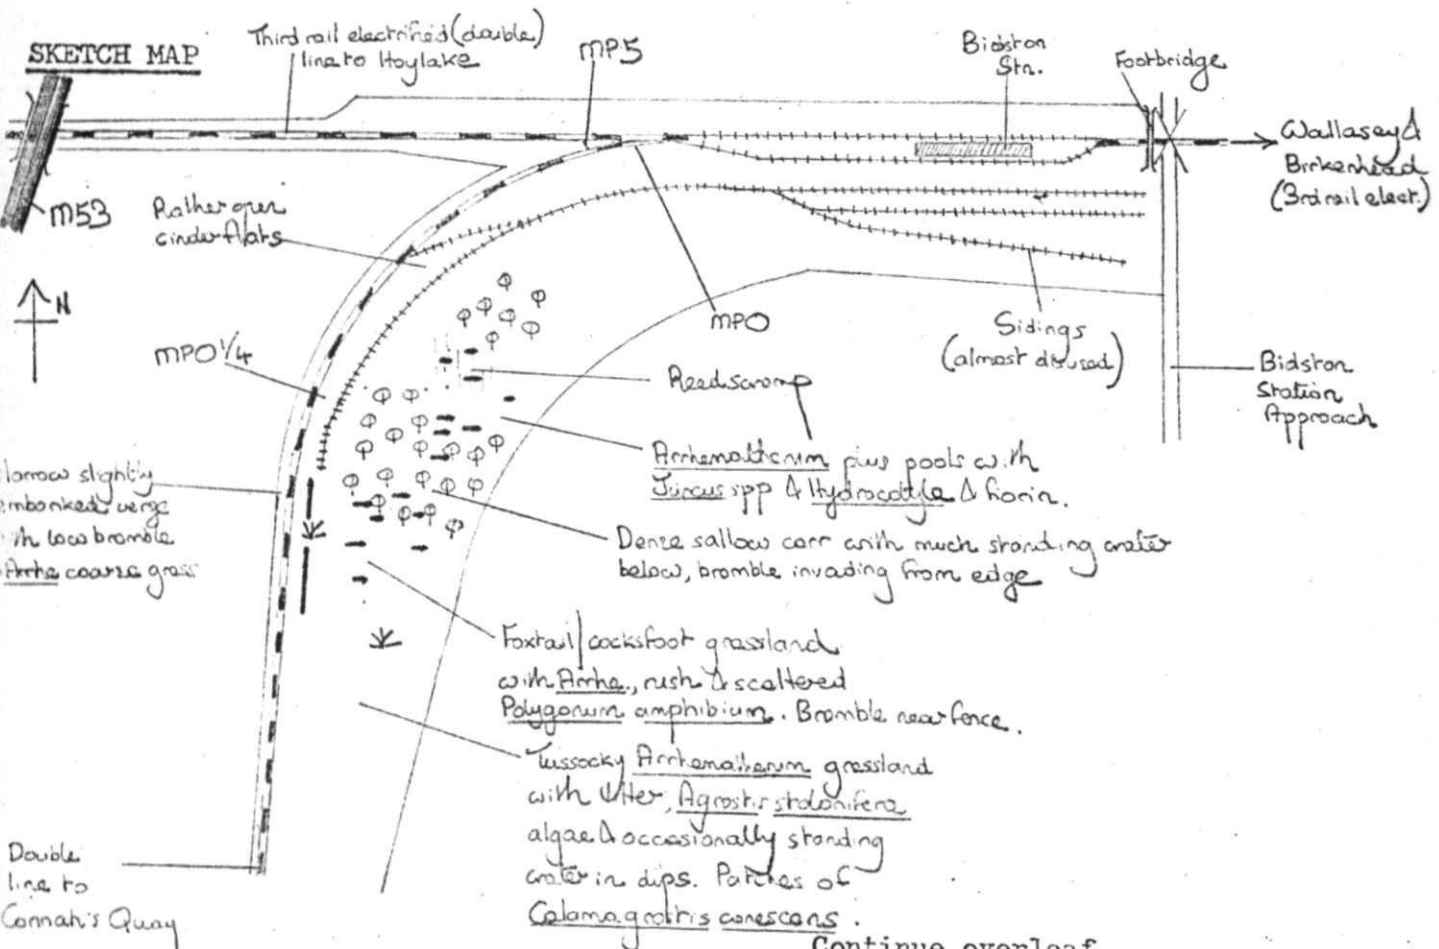 SKETCH MAP
Third rail electrified (double)
line to Hoylake
MP5
Bidston
Stn.
Footbridge
Wallasey &
Birkenhead
(3rd rail elect.)
M53
Rather open
cinder flats
N
MPO
MPO 1/4
Sidings
(almost disused)
Bidston
Station
Approach
Reedswamp
Arrhenatherum plus pools with
Juncus spp & Hydrocotyle & fiorin.
arrow slightly
mbanked verge
th low bramble
Arrhe coarse grass
Dense sallow carr with much standing water
below, bramble invading from edge
Foxtail/cocksfoot grassland
with Arrhe., rush & scattered
Polygonum amphibium. Bramble near fence.
Tussocky Arrhenatherum grassland
with litter, Agrostis stolonifera
algae & occasionally standing
water in dips. Patches of
Calamagrostis canescens.
Double
line to
Connah's Quay
Continue overleaf